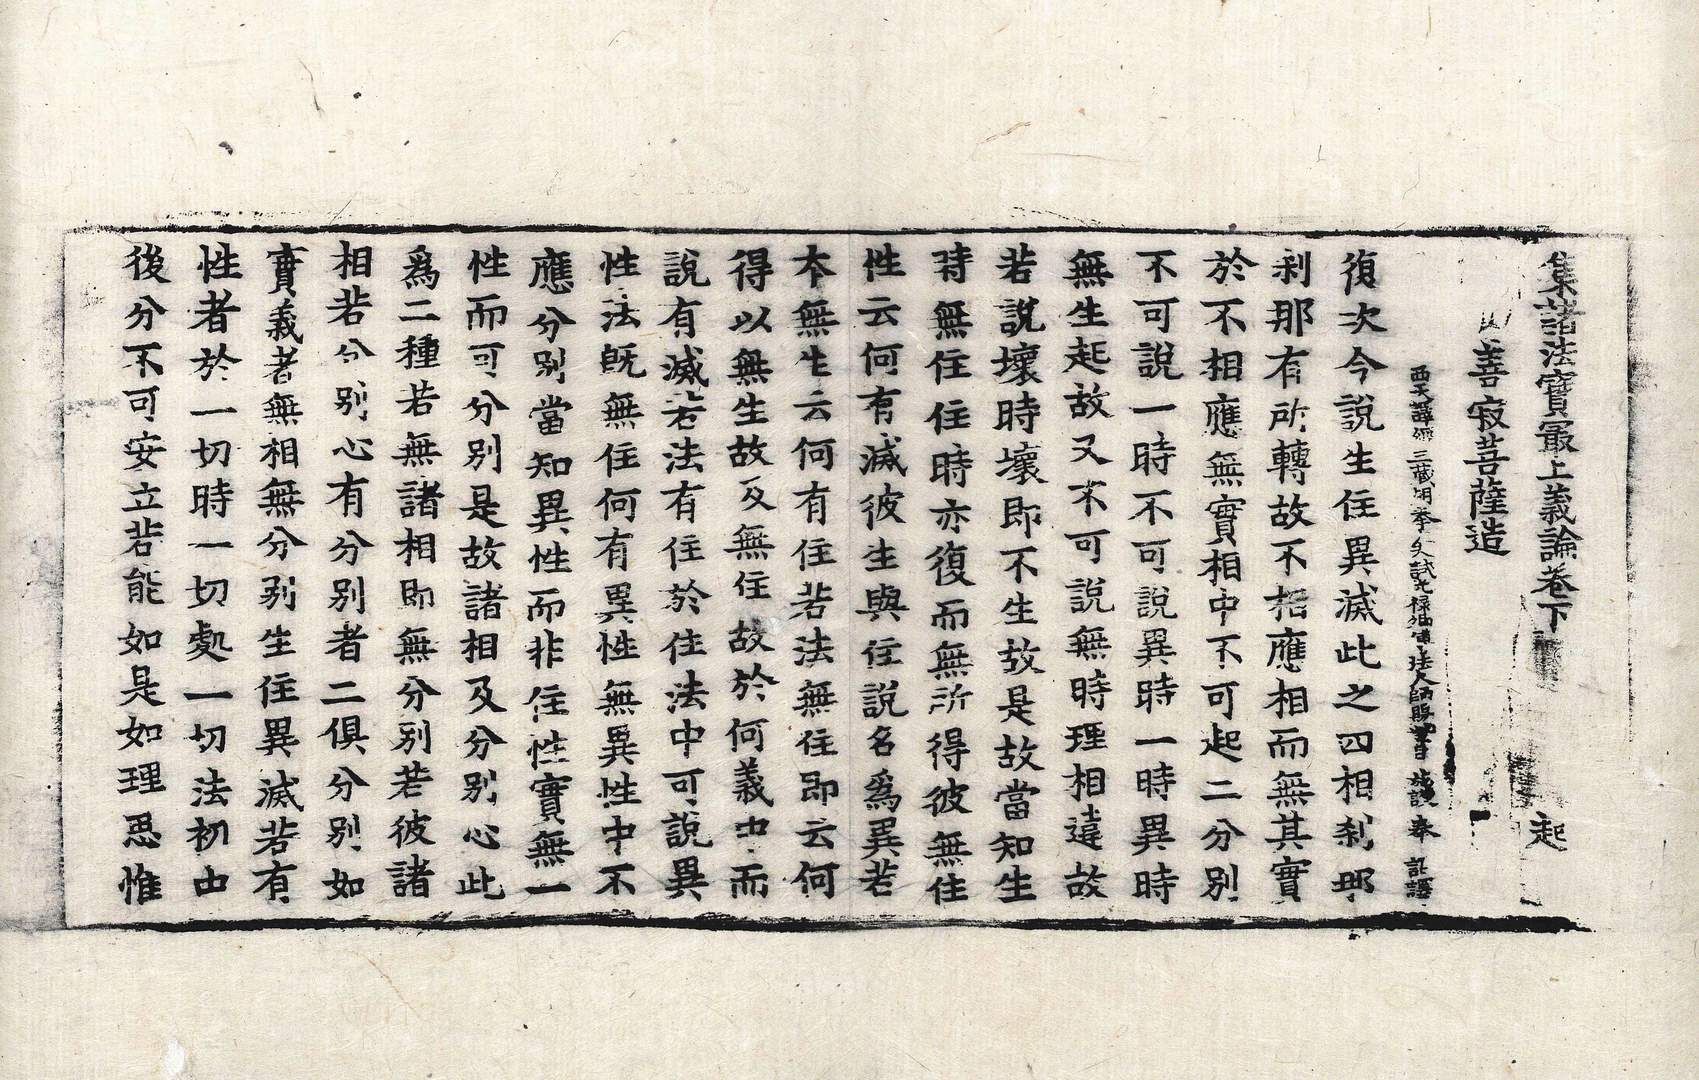 集諸法寶最上義論卷下 起
善寂菩薩造
西天譯經三藏朝奉大夫試光祿卿傳法大師賜紫臣施護奉 詔譯
復次今說生住異滅此之四相剎那
剎那有所轉故不相應相而無其實
於不相應無實相中不可起二分別
不可說一時不可說異時一時異時
無生起故又不可說無時理相違故
若說壞時壞即不生故是故當知生
時無住住時亦復而無所得彼無住
性云何有滅彼生與住說名爲異若
本無生云何有住若法無住即云何
得以無生故及無住故於何義中而
說有滅若法有住於住法中可說異
性法既無住何有異性無異性中不
應分別當知異性而非住性實無一
性而可分別是故諸相及分別心此
爲二種若無諸相即無分別若彼諸
相若分別心有分別者二俱分別如
實義者無相無分別生住異滅若有
性者於一切時一切處一切法初中
後分不可安立若能如是如理思惟